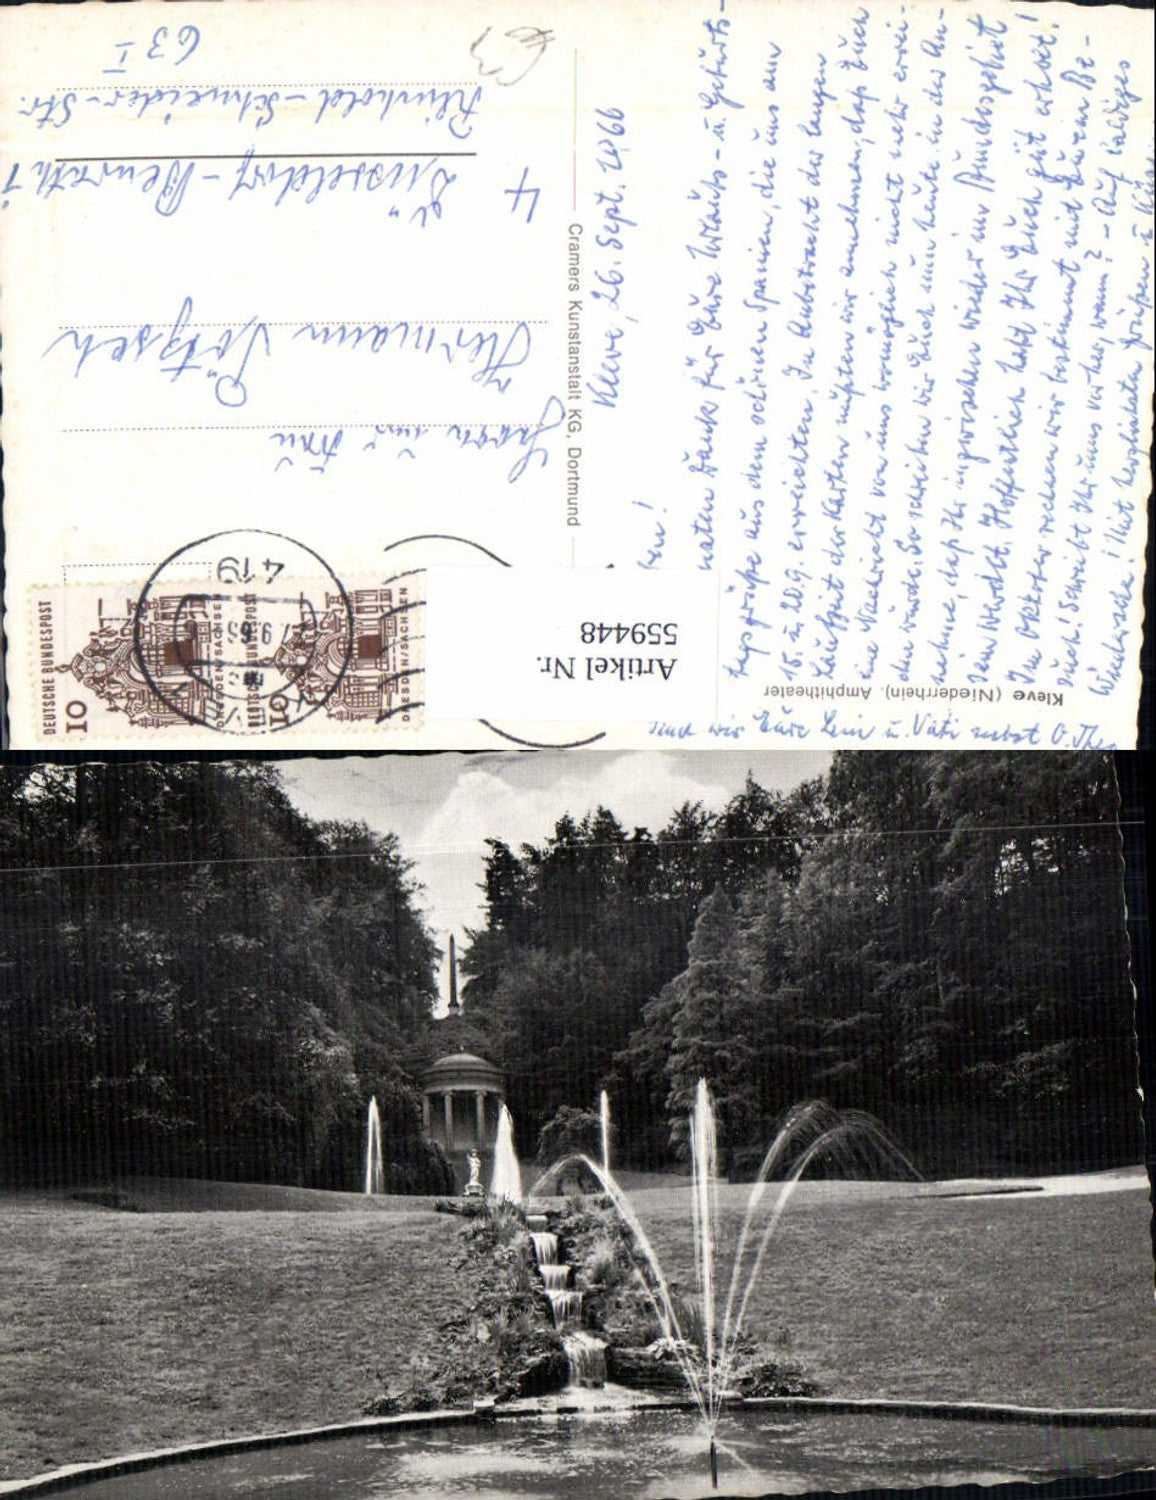 Kleve, 26. Sept. 1966
Dank für Eure Urlaubs- u. Geburts-
tagsgrüße aus dem schönen Spanien, die uns am
15. u. 20.9. erreichten. In Anbetracht der langen
Laufzeit der Karten müßten wir annehmen, daß Euch
eine Nachricht von uns womöglich nicht mehr errei-
chen würde. So schreiben wir Euch nun heute in der An-
nahme, daß Ihr inzwischen wieder im Bundesgebiet
sein werdet. Hoffentlich habt Ihr Euch gut erholt!
Im Oktober rechnen wir bestimmt mit Eurem Be-
such! Schreibt Ihr uns vorher, wann? - Auf baldiges
Wiedersehn! Mit herzlichsten Grüßen u.
sind wir Eure u. Vati nebst
Kleve (Niederrhein). Amphitheater
Cramers Kunstanstalt KG, Dortmund
Herrn und Frau
Hermann Pötzsch
4 Düsseldorf-Benrath 1
Reinhold-Schneider-Str.
63 I
DEUTSCHE BUNDESPOST
10
DRESDEN/SACHSEN
DEUTSCHE BUNDESPOST
10
DRESDEN/SACHSEN
419
Artikel Nr.
559448